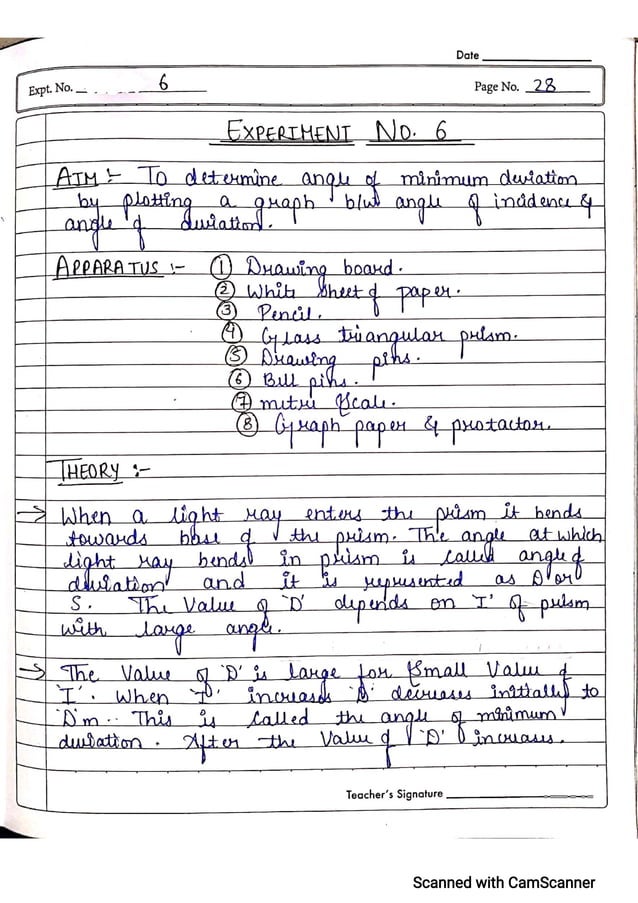 Date
Expt. No. 6
Page No. 28
EXPERIMENT NO. 6
AIM :- To determine angle of minimum deviation
by plotting a graph b/w angle of incidence &
angle of deviation.
APPARATUS :- ① Drawing board.
② White sheet of paper.
③ Pencil.
④ Glass triangular prism.
⑤ Drawing pins.
⑥ Bell pins.
⑦ metre Scale.
⑧ Graph paper & protactor.
THEORY :-
→ When a light ray enters the prism it bends
towards base of the prism. The angle at which
light ray bends in prism is called angle of
deviation and it is represented as D or
S. The Value of 'D' depends on I' of prism
with large angle.
→ The Value of 'D' is large for Small Value of
'I'. When 'I' increases 'D' decreases initially to
'D'm.. This is called the angle of minimum
deviation. After the Value of 'D' increases.
Teacher's Signature
Scanned with CamScanner